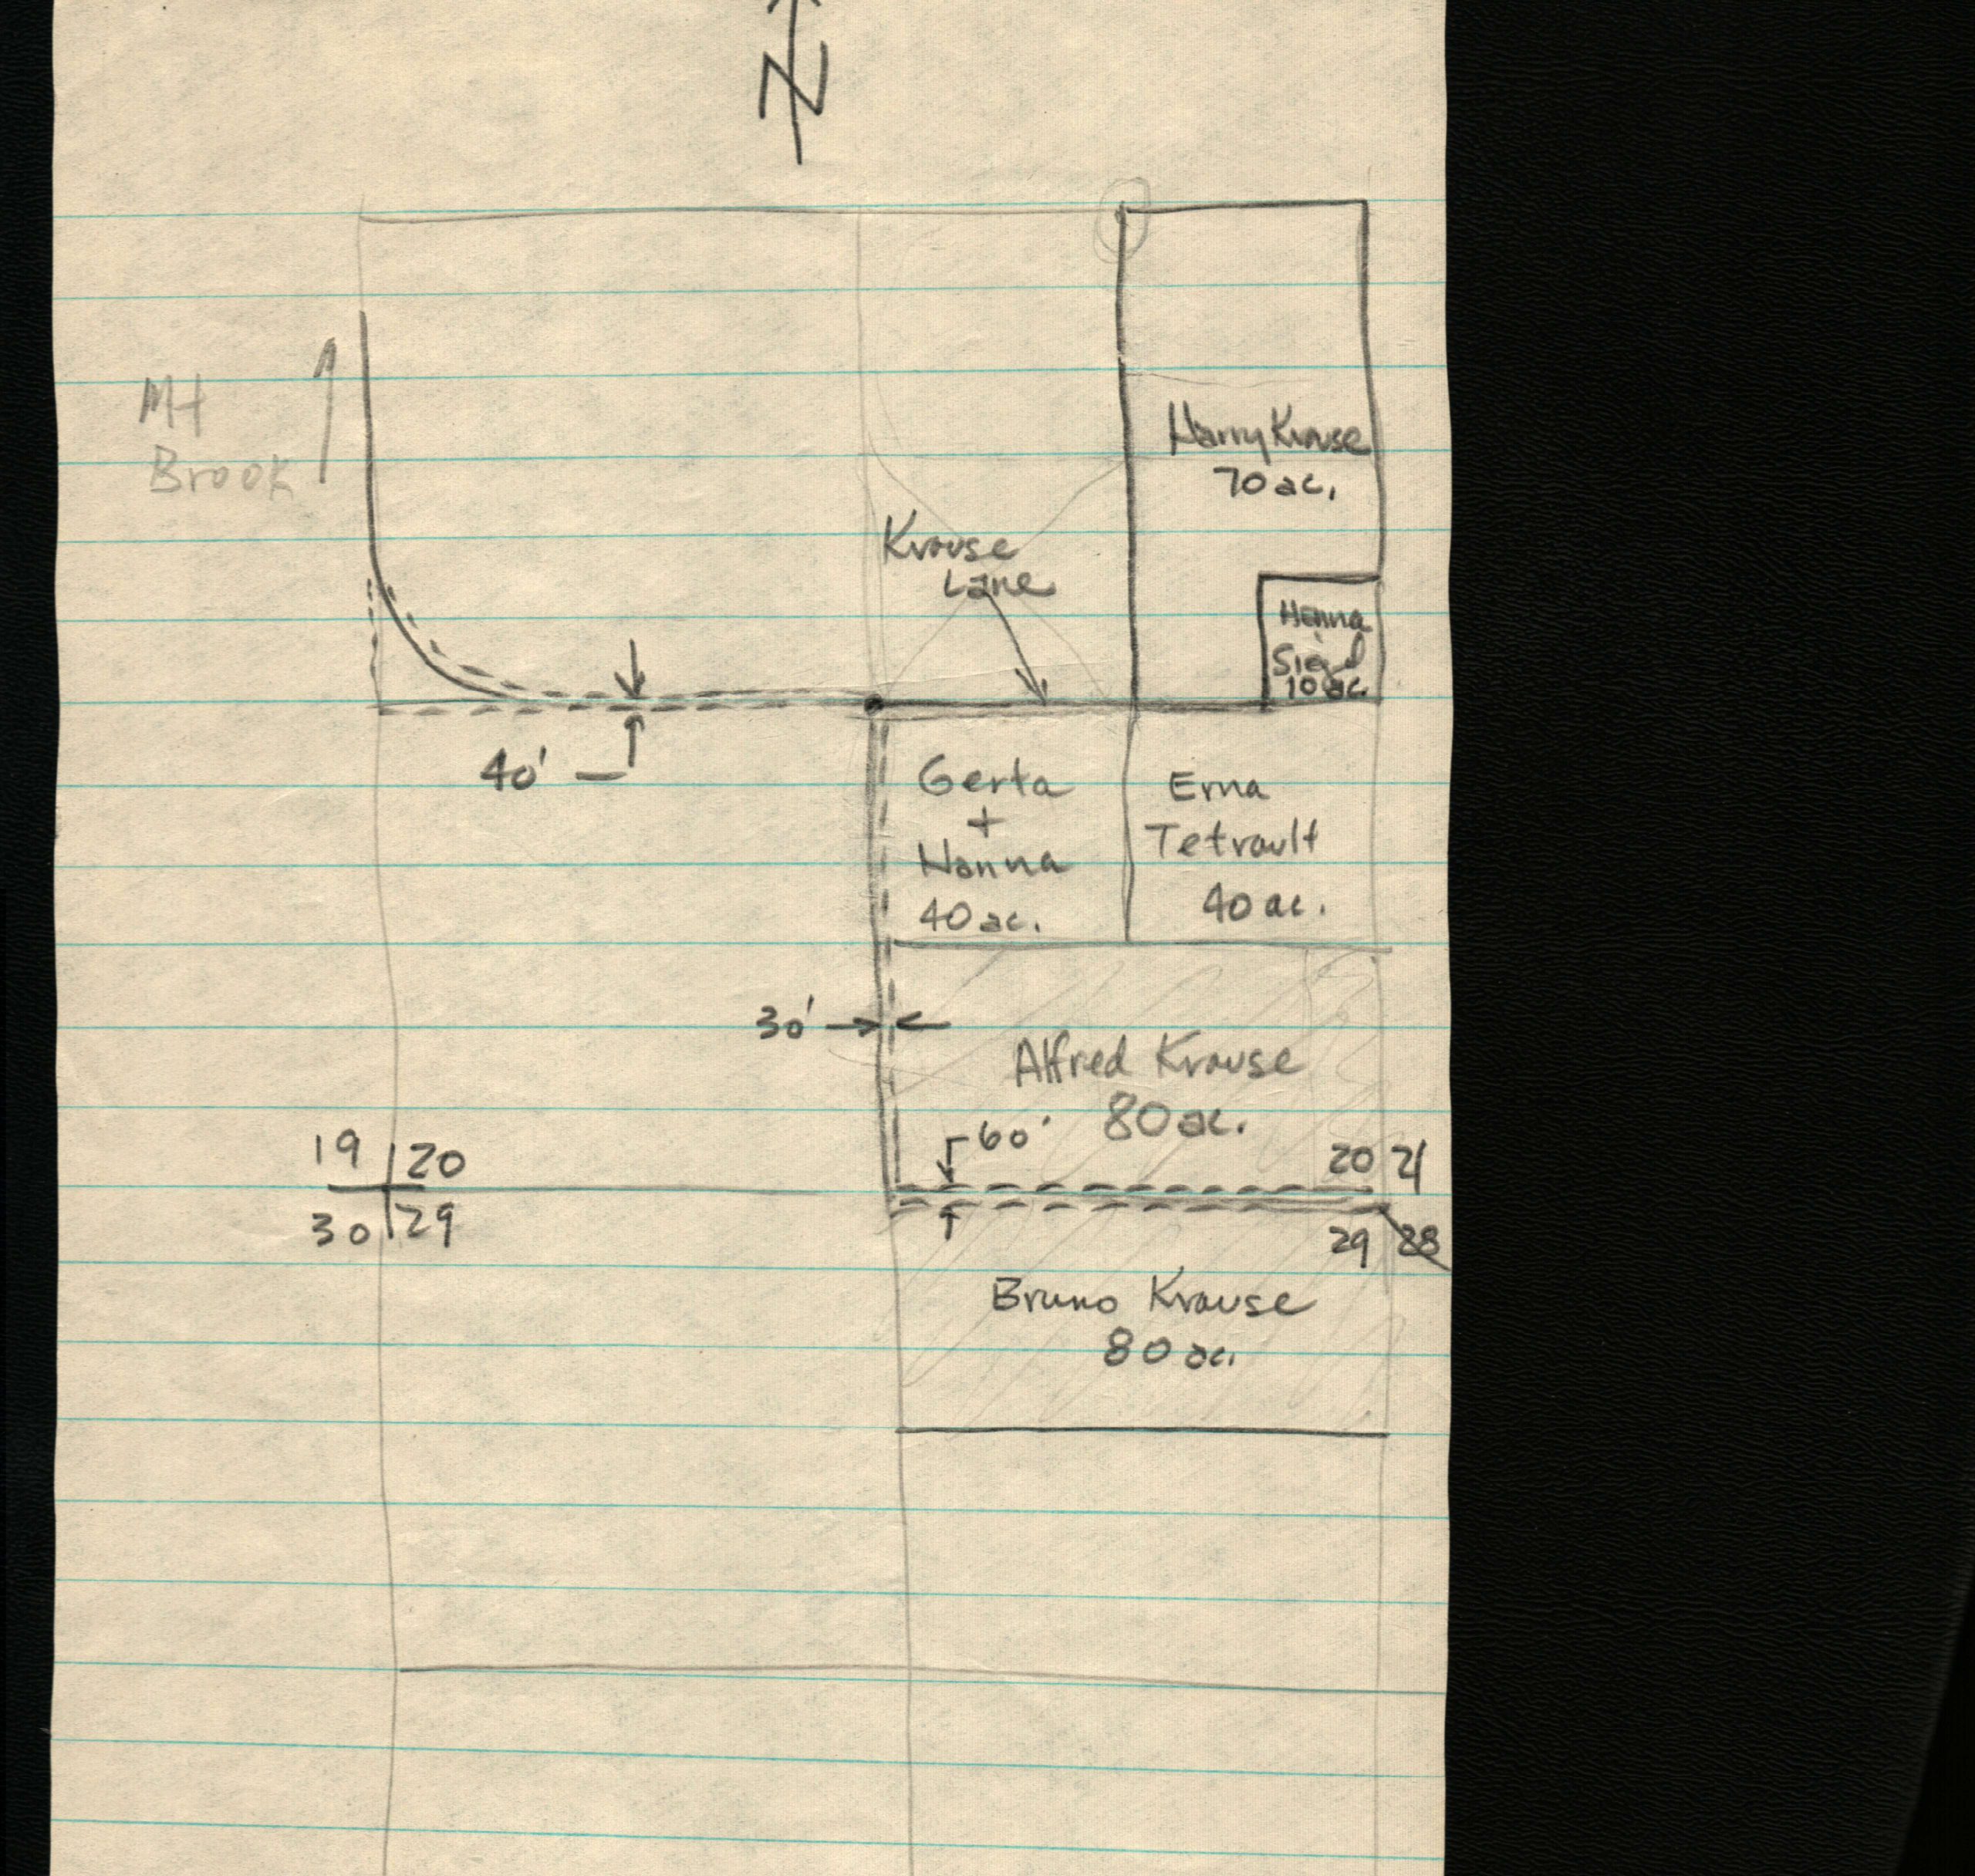 N
Mt
Brook
Harry Krause
70 ac.
Krause
Lane
Henna
10 ac.
40'
Gerta
+
Nanna
40 ac.
Erna
Tetrault
40 ac.
30'
Alfred Krause
80 ac.
60'
19 20
30 29
20 21
29 28
Bruno Krause
80 ac.